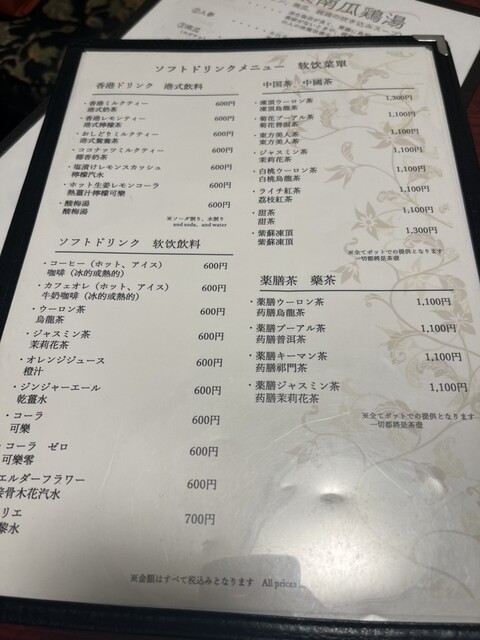 南瓜鶏湯
②人参
ソフトドリンクメニュー 软饮菜單
香港ドリンク 港式飲料
・香港ミルクティー 600円
港式奶茶
・香港レモンティー 600円
港式檸檬茶
・おしどりミルクティー 600円
港式鴛鴦茶
・ココナッツミルクティー 600円
椰香奶茶
・塩漬けレモンスカッシュ 600円
檸檬汽水
・ホット生姜レモンコーラ 600円
熱薑汁檸檬可樂
・酸梅湯 600円
酸梅湯
※ソーダ割り、水割り
and soda、and water
ソフトドリンク 软饮飲料
・コーヒー（ホット、アイス） 600円
咖啡（冰的或熱的）
・カフェオレ（ホット、アイス） 600円
牛奶咖啡（冰的或熱的）
・ウーロン茶 600円
烏龍茶
・ジャスミン茶 600円
茉莉花茶
・オレンジジュース 600円
橙汁
・ジンジャーエール 600円
乾薑水
・コーラ 600円
可樂
・コーラ ゼロ 600円
可樂零
エルダーフラワー 600円
接骨木花汽水
リエ 700円
黎水
中国茶 中國茶
・凍頂ウーロン茶 1,300円
凍頂烏龍茶
・菊花プーアル茶 1,100円
菊花普洱茶
・東方美人茶 1,100円
東方美人茶
・ジャスミン茶 1,100円
茉莉花茶
・白桃ウーロン茶 1,100円
白桃烏龍茶
・ライチ紅茶 1,100円
荔枝紅茶
・甜茶 1,100円
甜茶
・紫蘇凍頂 1,300円
紫蘇凍頂
※全てポットでの提供となります
一切都將是茶壺
薬膳茶 藥茶
・薬膳ウーロン茶 1,100円
药膳烏龍茶
・薬膳プーアル茶 1,100円
药膳普洱茶
・薬膳キーマン茶 1,100円
药膳祁門茶
・薬膳ジャスミン茶 1,100円
药膳茉莉花茶
※全てポットでの提供となります
一切都將是茶壺
※金額はすべて税込みとなります All prices